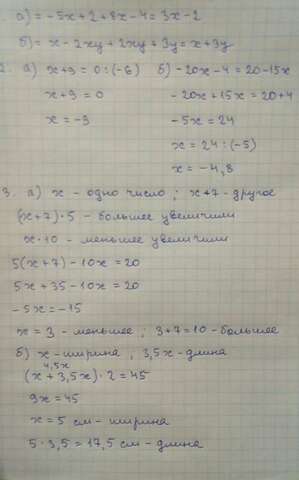 а) = -5x+2+8x-4=3x-2
б)= x-2xy+2xy+3y=x+3y
2. а) x+9=0:(-6) б) -20x-4=20-15x
x+9=0 -20x+15x=20+4
x=-9 -5x=24
x=24:(-5)
x=-4,8
3. а) x - одно число; x+7-другое
(x+7)·5 - большее увеличили
x·10 - меньшее увеличили
5(x+7)-10x=20
5x+35-10x=20
-5x=-15
x=3-меньшее; 3+7=10-большее
б) x-ширина, 3,5x-длина
4,5x
(x+3,5x)·2=45
9x=45
x=5 см-ширина
5·3,5=17,5 см-длина